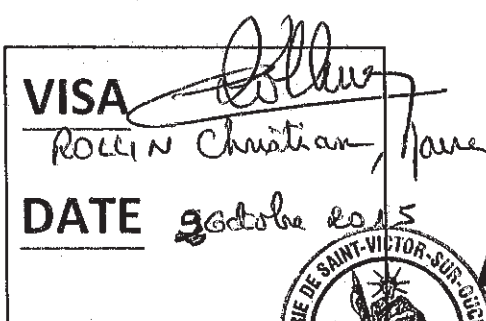 VISA
ROLLIN Christian, Maire
DATE 9 octobre 2015
RIE DE SAINT-VICTOR-SUR-OUC